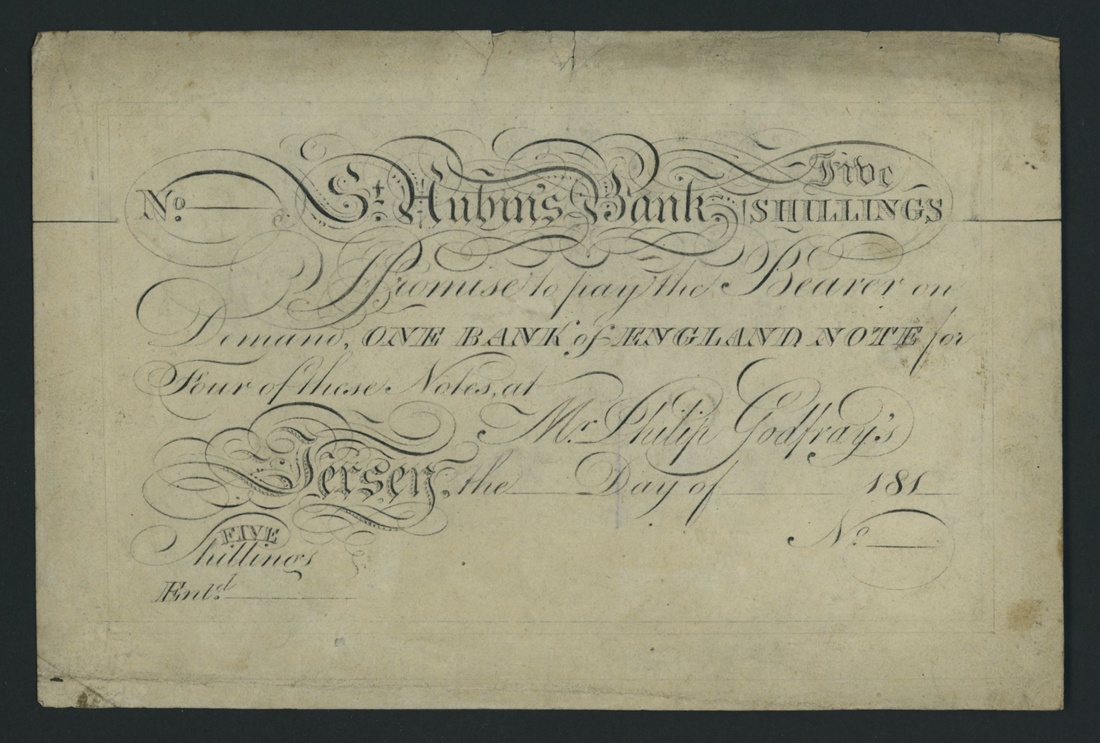 No. St. Aubin's Bank Five SHILLINGS
I Promise to pay the Bearer on
Demand, ONE BANK of ENGLAND NOTE for
Four of these Notes, at
Mr. Philip Godfray's
Jersey, the Day of 181
No.
FIVE
Shillings
Entd.